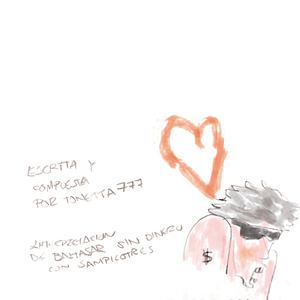 ESCRITA Y
COMPUESTA
POR TONETTA 777
INTERPRETACION
DE BALTASAR SIN DINERO
CON SAMPLCOTRES
$